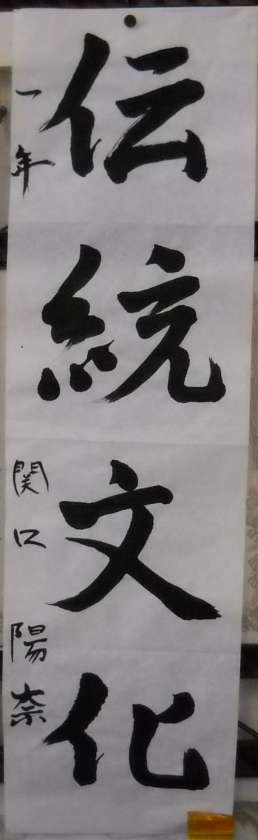 伝統文化
一年 関口陽奈